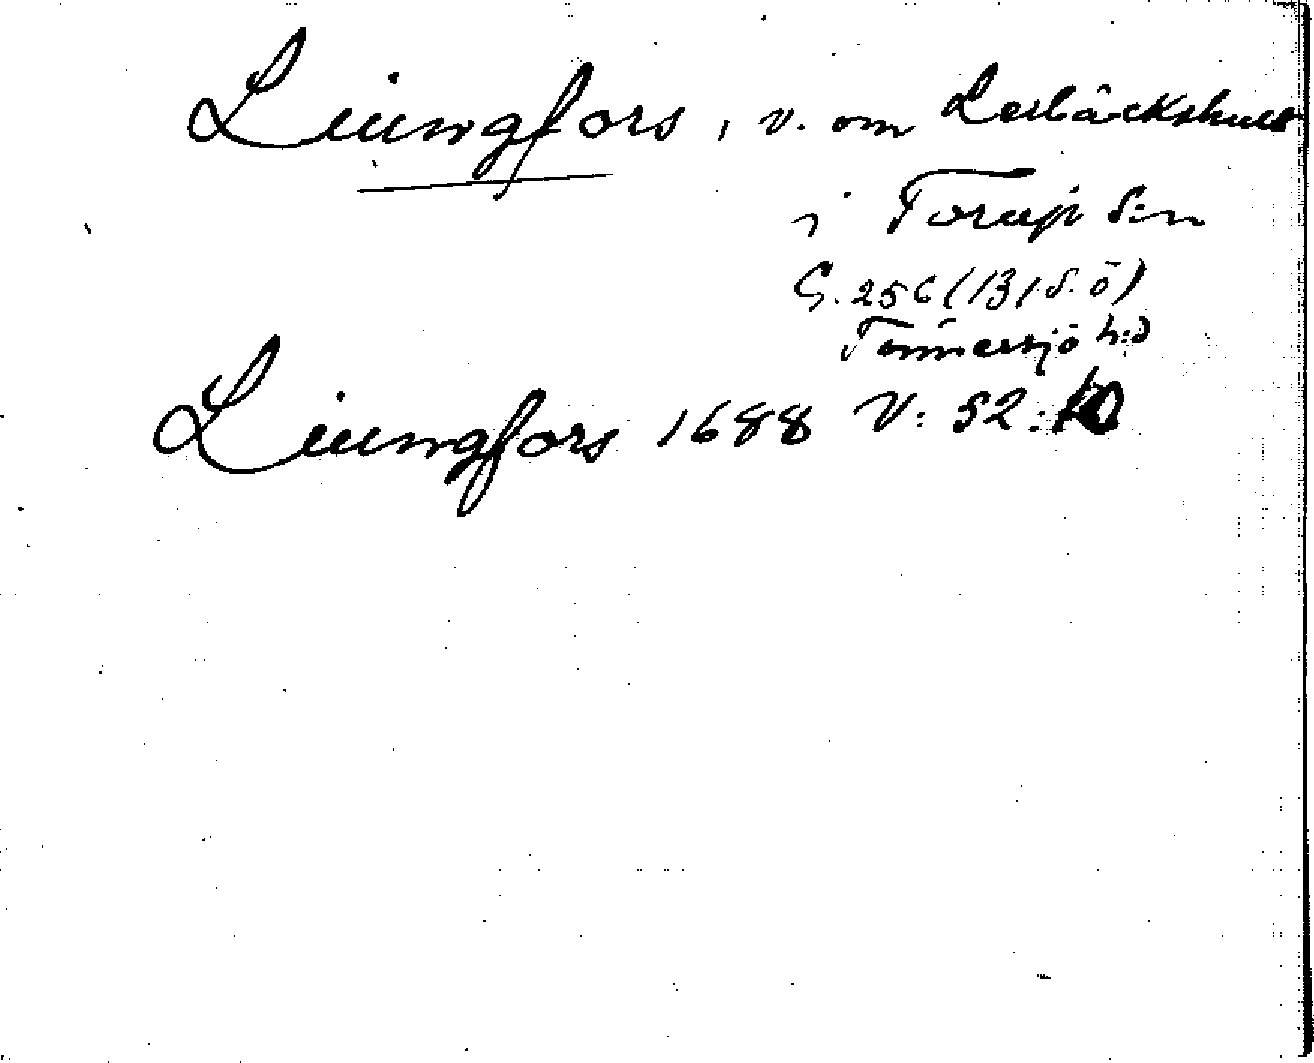 Liungfors, v. om Lerbäckshult
i Torup S:n
G. 256 (13/S.Ö)
Tönnersjö h:d
Liungfors 1688 V: 52:10